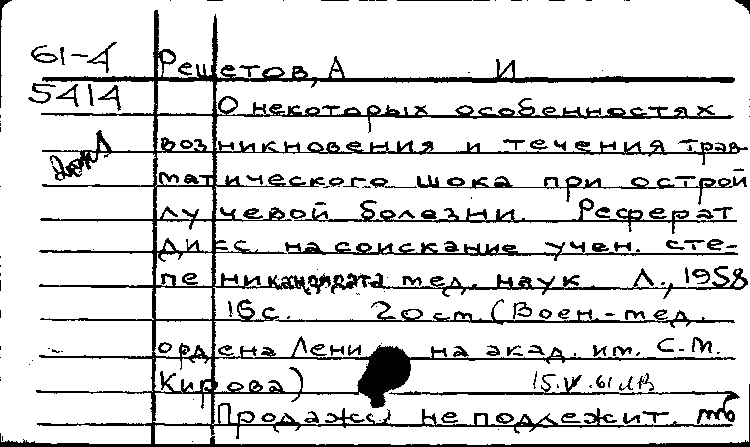 61-4 Решетов, А И
5414 О некоторых особенностях
возникновения и течения трав
матического шока при острой
лучевой болезни. Реферат
дисс. на соискание учен. сте-
пени кандидата мед. наук. Л., 1958
16 с. 20 см. (Воен.-мед.
ордена Ленина акад. им. С.М.
Кирова)
Продаже не подлежит.